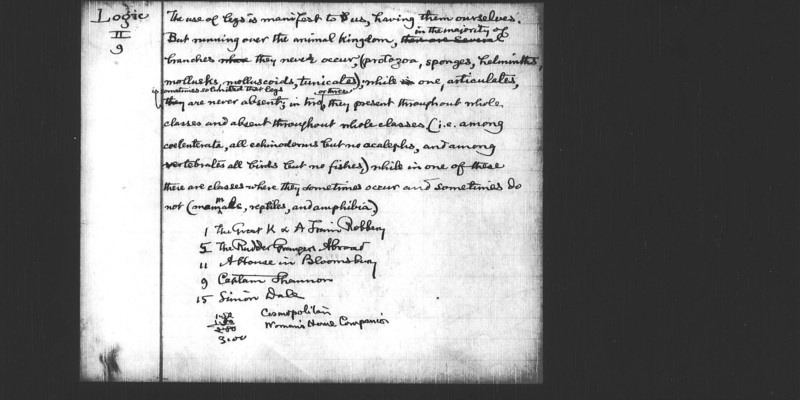 Logic
II
9
The use of legs is manifest to us, having them ourselves.
But running over the animal kingdom, there are several in the majority of
branches they never occur, (protozoa, sponges, helminths,
mollusks, molluscoids, tunicates), while in one, articulates,
sometimes so limited that legs
they are never absent; in two, they present throughout whole
classes and absent throughout whole classes (i.e. among
coelenterata, all echinoderms but no acalephs, and among
vertebrates all birds but no fishes) while in one of these
there are classes where they sometimes occur and sometimes do
not (mammals, reptiles, and amphibia)
1 The Great K & A Train Robbery
5 The Rudder Grangers Abroad
11 A House in Bloomsbury
9 Captain Shannon
15 Simon Dale
Cosmopolitan
Woman's Home Companion
3.00